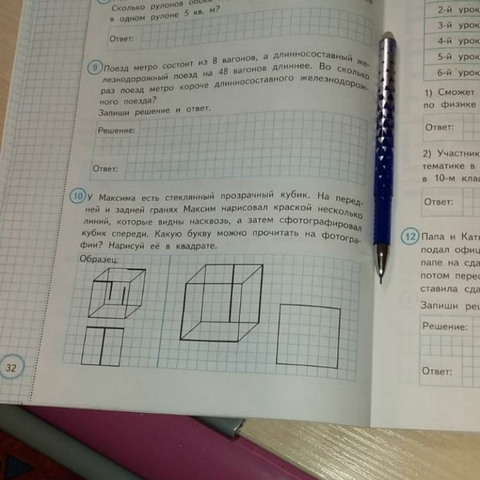 Сколько рулонов обоев
в одном рулоне 5 кв. м?
Ответ:
9 Поезд метро состоит из 8 вагонов, а длинносоставный же-
лезнодорожный поезд на 48 вагонов длиннее. Во сколько
раз поезд метро короче длинносоставного железнодорож-
ного поезда?
Запиши решение и ответ.
Решение:
Ответ:
10 У Максима есть стеклянный прозрачный кубик. На перед-
ней и задней гранях Максим нарисовал краской несколько
линий, которые видны насквозь, а затем сфотографировал
кубик спереди. Какую букву можно прочитать на фотогра-
фии? Нарисуй её в квадрате.
Образец:
32
2-й урок
3-й урок
4-й урок
5-й урок
6-й урок
1) Сможет
по физике
Ответ:
2) Участник
тематике в
в 10-м клас
12 Папа и Катя
подал офиц
папе на сда
потом перес
ставила сда
Запиши реш
Решение:
Ответ: